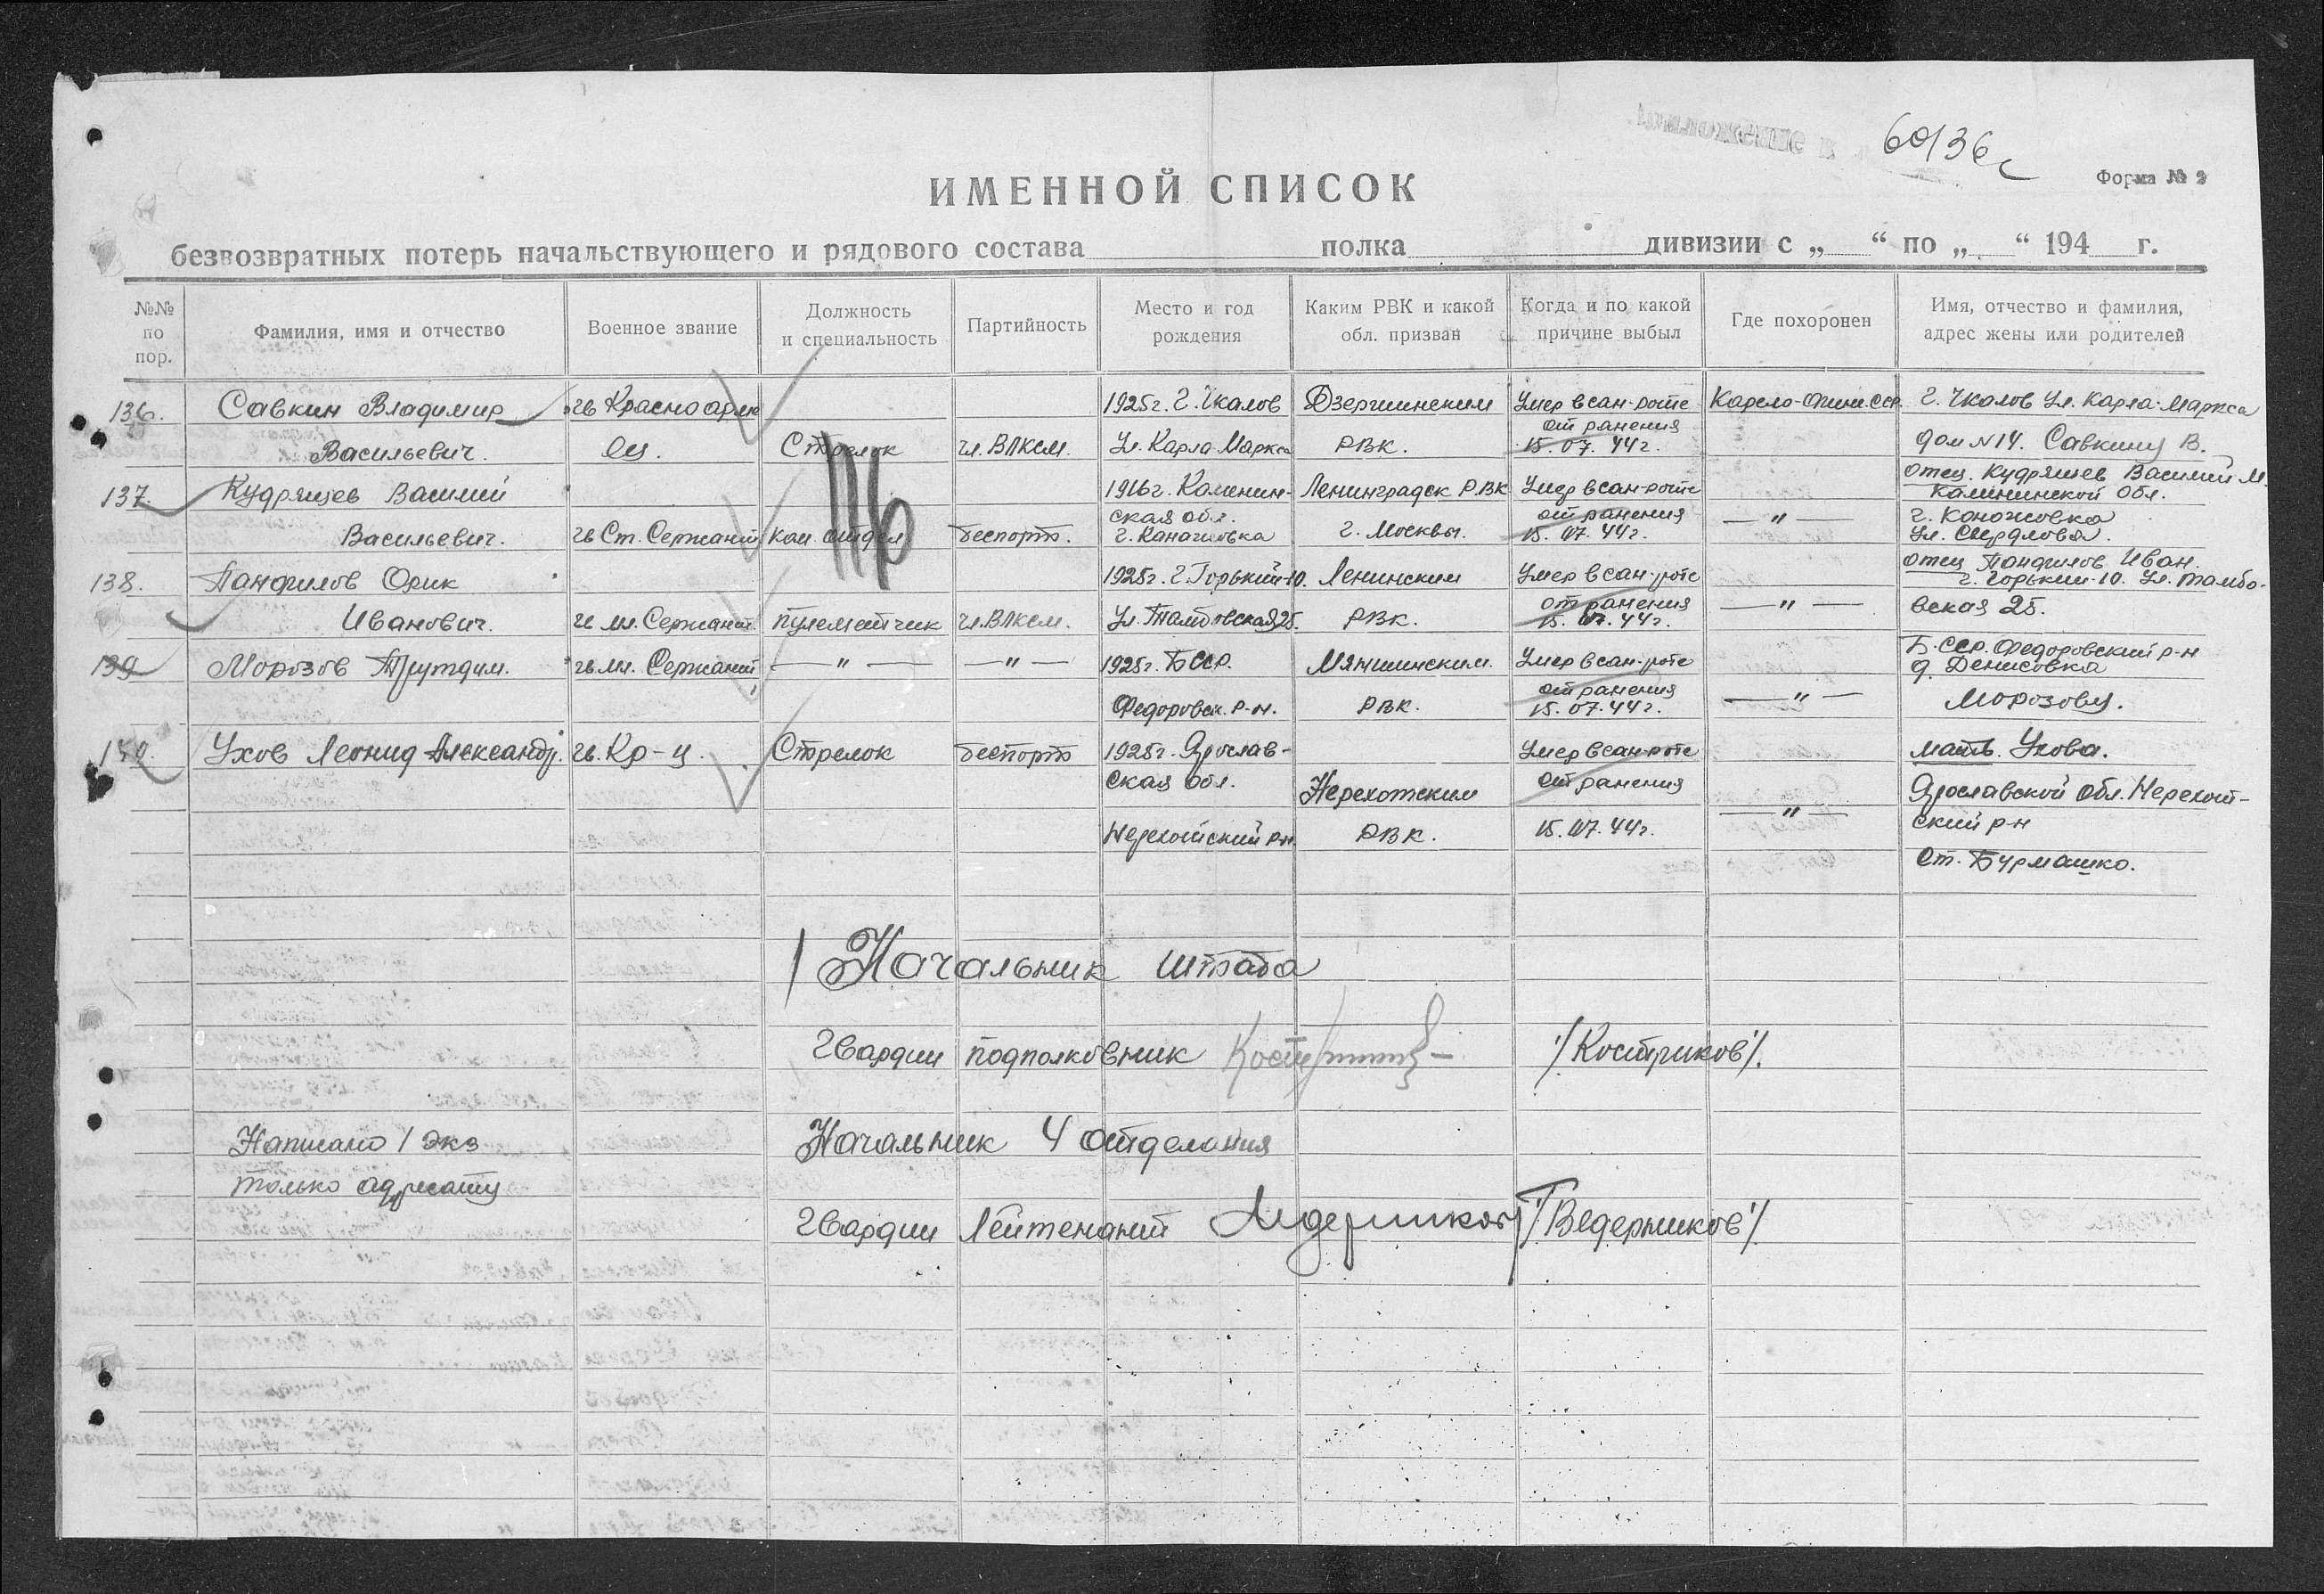 60136с
Форма № 2
ИМЕННОЙ СПИСОК
безвозвратных потерь начальствующего и рядового состава полка дивизии с „ “ по „ “ 194 г.
№№ по пор.
Фамилия, имя и отчество
Военное звание
Должность и специальность
Партийность
Место и год рождения
Каким РВК и какой обл. призван
Когда и по какой причине выбыл
Где похоронен
Имя, отчество и фамилия, адрес жены или родителей
136. Савкин Владимир гв Красноарме 1925г. г. Чкалов Дзержинским Умер в сан-роте Карело-Фин.ССР. г. Чкалов Ул. Карла-Маркса
от ранения
Васильевич. ец. Стрелок чл. ВЛКСМ. Ул. Карла-Маркса РВК. 15.07.44г. дом N14. Савкину В.
116
137. Кудряшев Василий 1916г. Каленин- Ленинградск Р.ВК Умер в сан-роте отец. Кудряшев Василий М.
Калининской Обл.
ская обл. от ранения г. Конаковка
Васильевич. гв Ст. Сержант ком. отдел беспорт. г. Конаковка г. Москвы. 15.07.44г. — " — Ул. Свердлова.
138. Панфилов Орик 1925г. г. Горький-10. Ленинским Умер в сан-роте отец Панфилов Иван.
г. Горький-10. Ул. Тамбо-
от ранения
Иванович. гв мл. Сержант. пулеметчик чл. ВЛКСМ. Ул. Тамбовская 25. РВК. 15.07.44г. — " — вская 25.
139 Морозов гв мл. Сержант — " — — " — 1925г. БССР. Умер в сан-роте Б.ССР. Федоровский р-н
д. Денисовка
от ранения
Федоровск. р-н. РВК. 15.07.44г. — " — Морозову.
140. Ухов Леонид Александр. гв. Кр-ц. Стрелок беспорт 1925г. Ярослав- Умер в сан-роте мать. Ухова.
ская обл. Нерехотским от ранения Ярославской обл. Нерехот-
Нерехотский р-н РВК. 15.07.44г. — " — ский р-н
ст. Бурмашко.
Начальник штаба
Гвардии подполковник /Костриков/.
Написано 1 экз Начальник 4 отделения
только адресату
Гвардии Лейтенант /Ведерников/